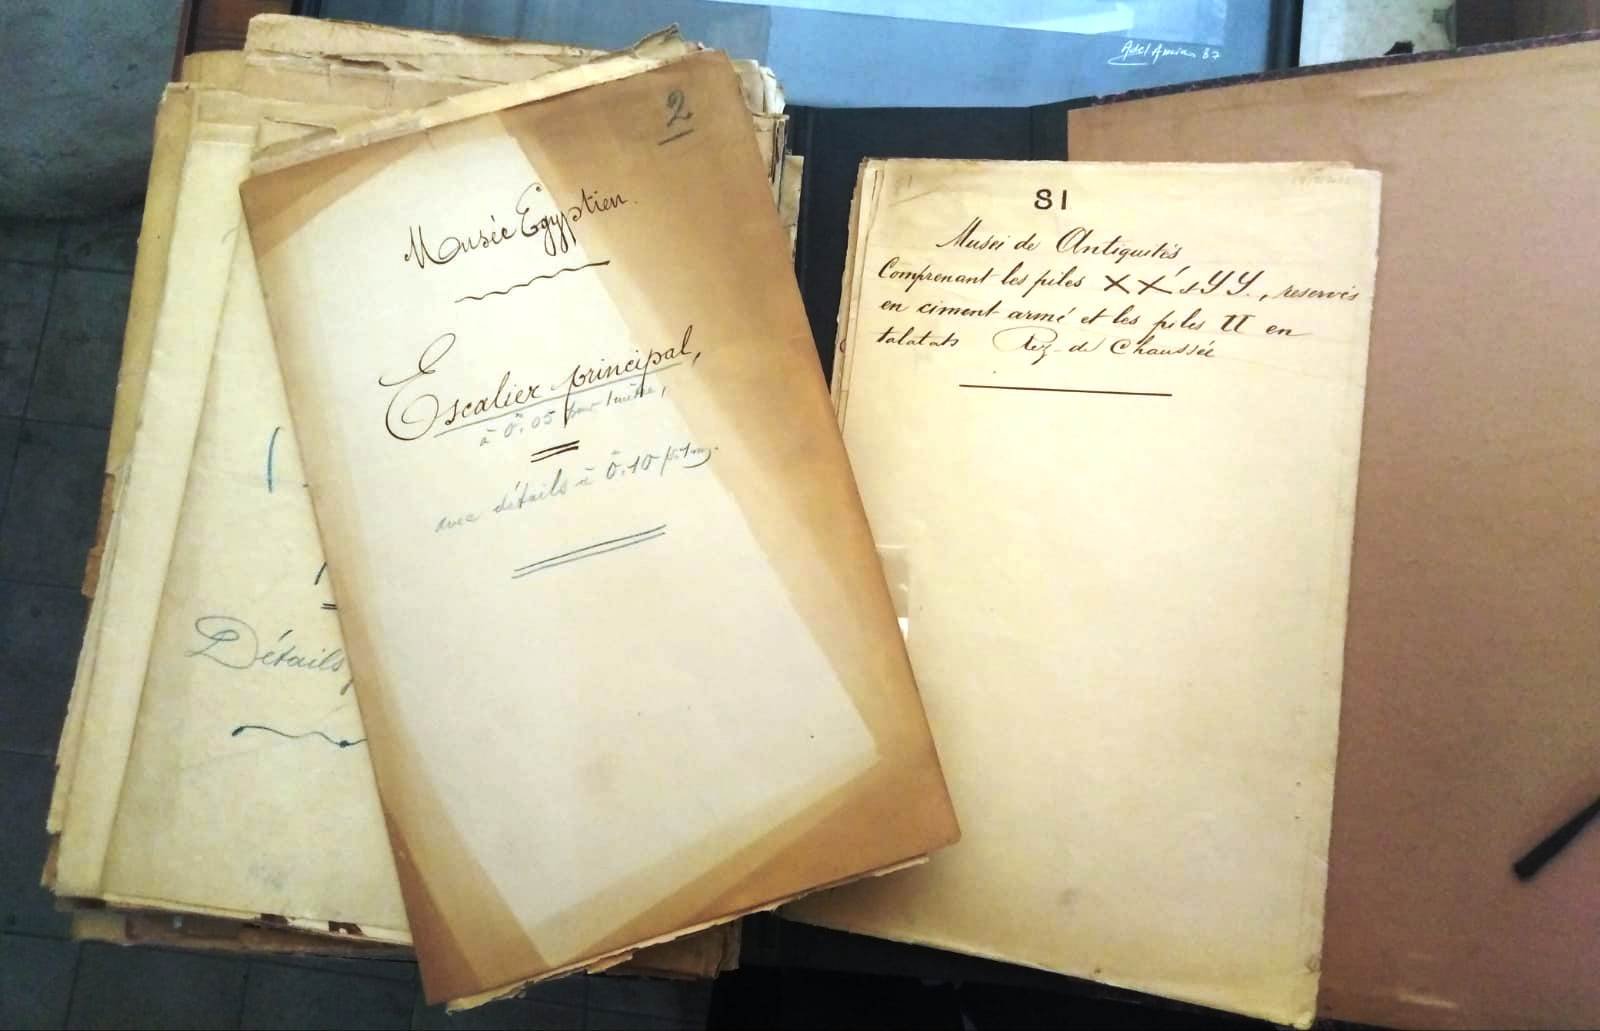 2
Musée Egyptien.
Escalier principal,
à 0.05 par mètre,
avec détails à 0.10 p.
Détails
81
Musei de Antiquités
Comprenant les piles XX et YY, reservés
en ciment armé et les piles II en
talatats Rez-de Chaussée
87